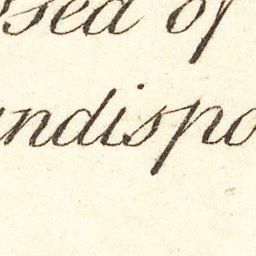 osed of
undispo